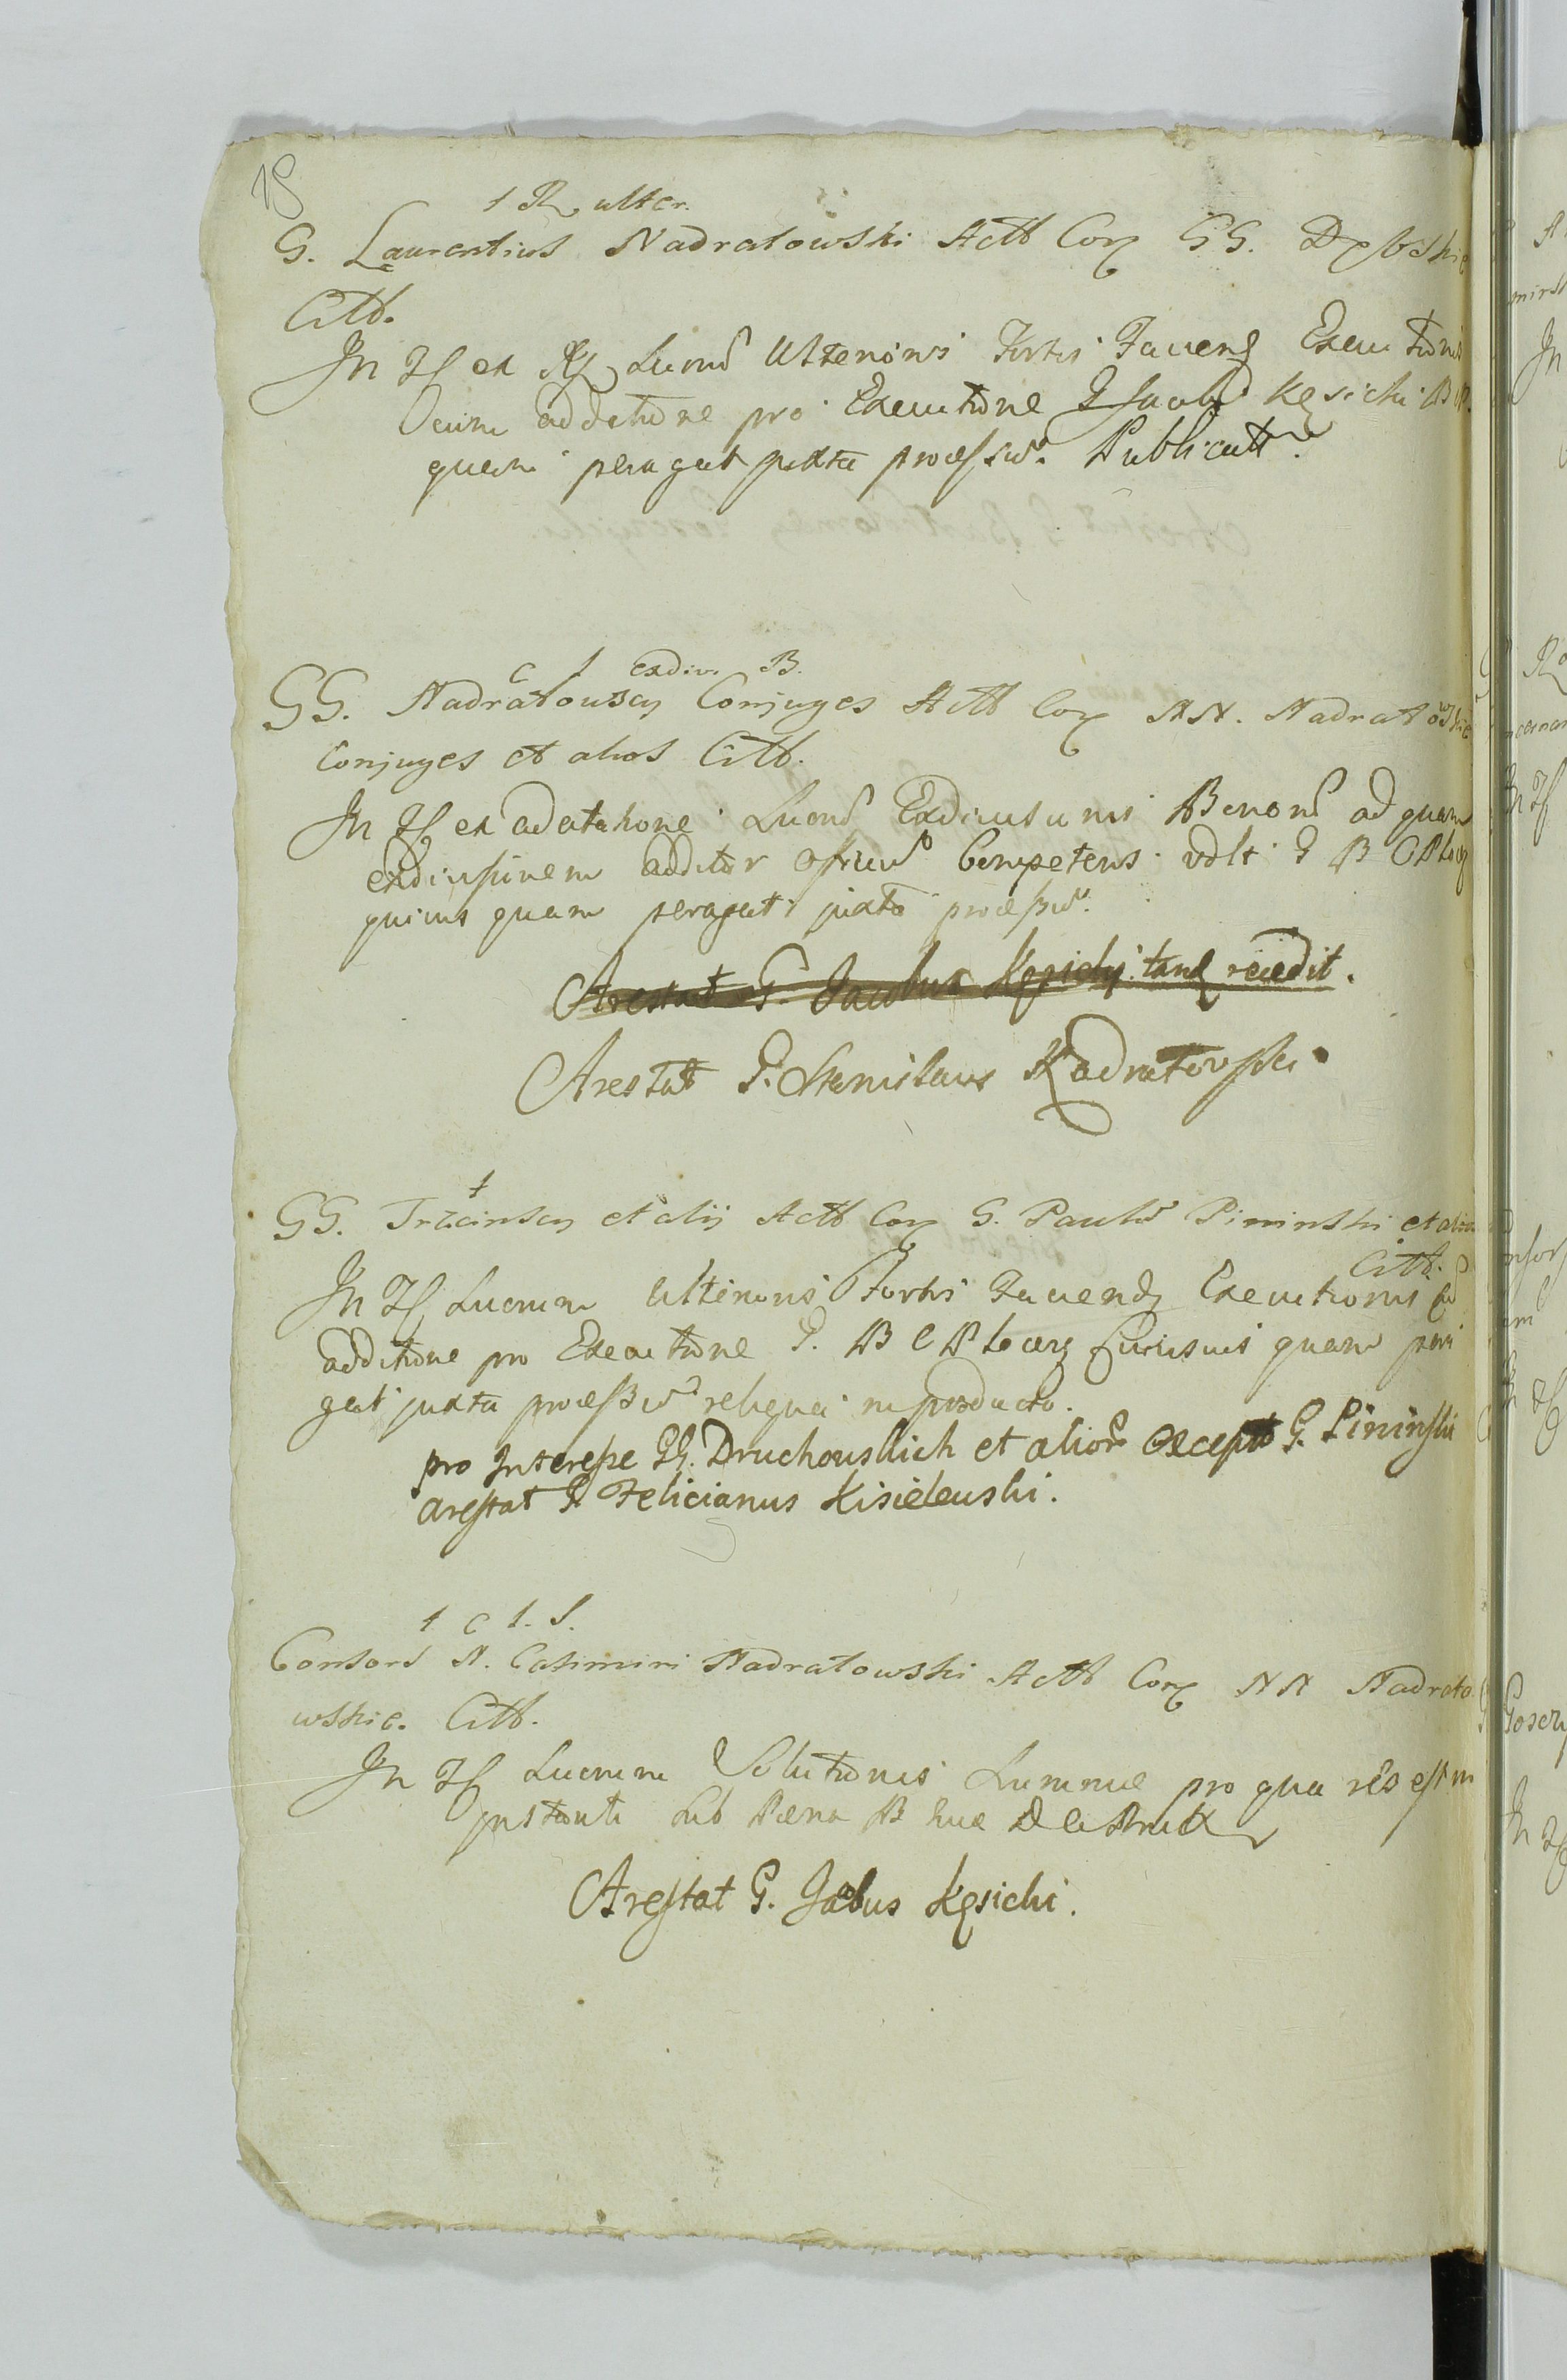 18
1 R ulter.
G. Laurentius Nadratowski Actt Cor GG. Dębskie
Citt.
In Tt ex Lucrum Ulterioris Fortis Faciend Executionis
cum additione pro Executione G Jacobo Kęsicki B
quam peragat juxta processum. Publicatt.
C 1 exdiv. B.
GG. Nadratowscy Conjuges Actt Cor NN. Nadratowskie
Conjuges et alios Citt.
In Tt ex adcitatione Lucrum Exdivisionis Bonorum ad quam
exdivisionem additur officium Competens vult G B C Ploc
quam peragat juxta processum.
Arestat G. Jacobus Kęsicky tand recedit.
Arestat G. Stanislaus Nadratowski
1
GG. Trzcinscy et alij Actt Cor G. Paulum Pininski et alios
Citt.
In Tt Lucrum Ulterioris Fortis Faciend Executionis
additione pro Executione G. B C Ploc quam pera
gat juxta processum reliqua reproducto.
pro Interesse GG. Druchowskich et alior excepto G. Pininski
arestat G. Felicianus Kisielewski.
1 C 1. S.
Consors N. Casimiri Nadratowski Actt Cor NN Nadrato
wskie. Citt.
In Tt Lucrum Solutionis Summae pro qua res est in
instanti sub Paena B
Arestat G. Jacobus Kęsicki.